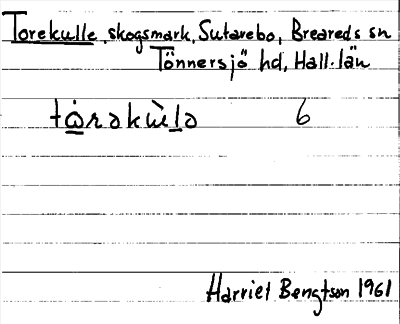 Torekulle, skogsmark, Sutarebo, Breareds sn
Tönnersjö hd, Hall. län
tω̇rəkùlə 6
Harriet Bengtson 1961